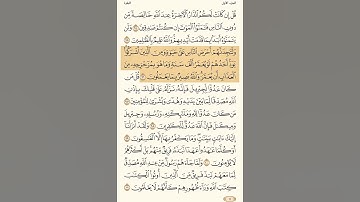 الجزء الأول البقرة
قُلْ إِن كَانَتْ لَكُمُ ٱلدَّارُ ٱلْأٓخِرَةُ عِندَ ٱللَّهِ خَالِصَةً مِّن
دُونِ ٱلنَّاسِ فَتَمَنَّوُا۟ ٱلْمَوْتَ إِن كُنتُمْ صَٰدِقِينَ ٩٤ وَلَن
يَتَمَنَّوْهُ أَبَدًۢا بِمَا قَدَّمَتْ أَيْدِيهِمْ وَٱللَّهُ عَلِيمٌۢ بِٱلظَّٰلِمِينَ ٩٥
وَلَتَجِدَنَّهُمْ أَحْرَصَ ٱلنَّاسِ عَلَىٰ حَيَوٰةٍ وَمِنَ ٱلَّذِينَ أَشْرَكُوا۟
يَوَدُّ أَحَدُهُمْ لَوْ يُعَمَّرُ أَلْفَ سَنَةٍ وَمَا هُوَ بِمُزَحْزِحِهِۦ مِنَ
ٱلْعَذَابِ أَن يُعَمَّرَ وَٱللَّهُ بَصِيرٌۢ بِمَا يَعْمَلُونَ ٩٦ قُلْ مَن
كَانَ عَدُوًّا لِّجِبْرِيلَ فَإِنَّهُۥ نَزَّلَهُۥ عَلَىٰ قَلْبِكَ بِإِذْنِ
ٱللَّهِ مُصَدِّقًا لِّمَا بَيْنَ يَدَيْهِ وَهُدًى وَبُشْرَىٰ لِلْمُؤْمِنِينَ ٩٧
مَن كَانَ عَدُوًّا لِّلَّهِ وَمَلَٰٓئِكَتِهِۦ وَرُسُلِهِۦ وَجِبْرِيلَ
وَمِيكَىٰلَ فَإِنَّ ٱللَّهَ عَدُوٌّ لِّلْكَٰفِرِينَ ٩٨ وَلَقَدْ أَنزَلْنَآ
إِلَيْكَ ءَايَٰتٍۭ بَيِّنَٰتٍ وَمَا يَكْفُرُ بِهَآ إِلَّا ٱلْفَٰسِقُونَ ٩٩
أَوَكُلَّمَا عَٰهَدُوا۟ عَهْدًا نَّبَذَهُۥ فَرِيقٌ مِّنْهُم بَلْ أَكْثَرُهُمْ
لَا يُؤْمِنُونَ ١٠٠ وَلَمَّا جَآءَهُمْ رَسُولٌ مِّنْ عِندِ ٱللَّهِ مُصَدِّقٌ
لِّمَا مَعَهُمْ نَبَذَ فَرِيقٌ مِّنَ ٱلَّذِينَ أُوتُوا۟ ٱلْكِتَٰبَ
كِتَٰبَ ٱللَّهِ وَرَآءَ ظُهُورِهِمْ كَأَنَّهُمْ لَا يَعْلَمُونَ ١٠١